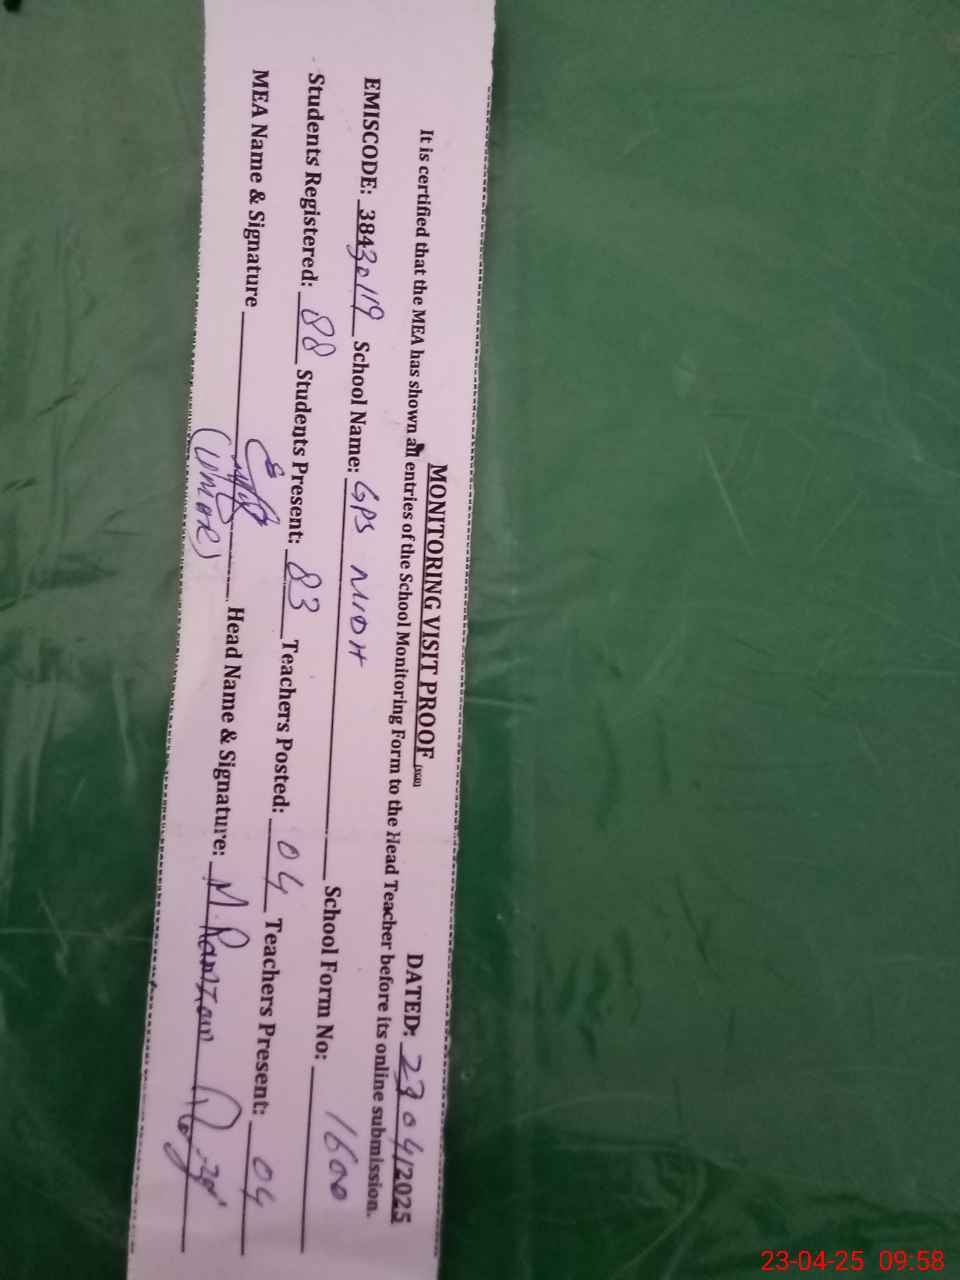 MONITORING VISIT PROOF
DATED: 23 04/2025
It is certified that the MEA has shown all entries of the School Monitoring Form to the Head Teacher before its online submission.
EMISCODE: 38430119 School Name: GPS NIDH School Form No: 1600
Students Registered: 88 Students Present: 83 Teachers Posted: 04 Teachers Present: 04
MEA Name & Signature (UMAR) Head Name & Signature: M. Ramzan
23-04-25 09:58